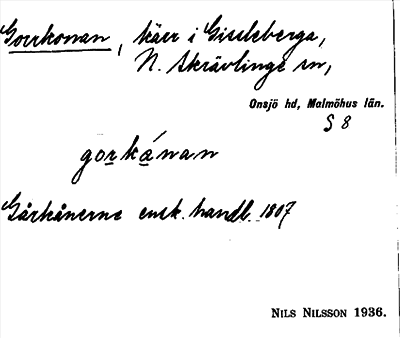 Gorrkonan, kärr i Gisleberga,
N. Skrävlinge sn,
Onsjö hd, Malmöhus län.
S 8
gorkánan
Gårkånerne ensk. handl. 1807
NILS NILSSON 1936.